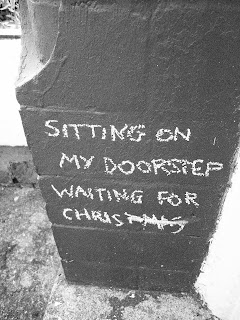 SITTING ON
MY DOORSTEP
WAITING FOR
CHRISTMAS